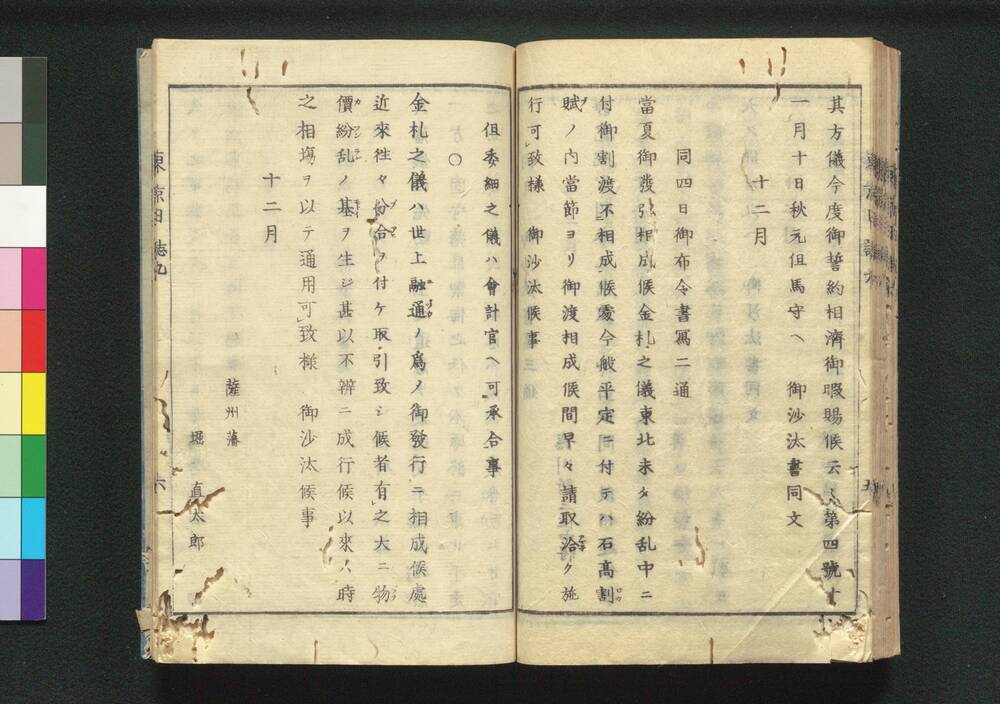 其方儀今度御誓約相濟御暇賜候云々第四號十
一月十日秋元但馬守ヘ 御沙汰書同文
十二月
同四日御布令書寫二通
當夏御發引相成候金札之儀東北未タ紛乱中ニ
付御割渡不相成候處今般平定ニ付テハ石高割
賦ノ内當節ヨリ御渡相成候間早々請取洽ク施
行可致様 御沙汰候事
但委細之儀ハ會計官ヘ可承合事
○
金札之儀ハ世上融通ノ爲ノ御發行ニ相成候處
近來徃々份合ヲ付ケ取引致シ候者有之大ニ物
價紛乱ノ基ヲ生シ甚以不辨ニ成行候以來ハ時
之相塲ヲ以テ通用可致様 御沙汰候事
十二月
薩州藩
堀直太郎
東京日誌九
六